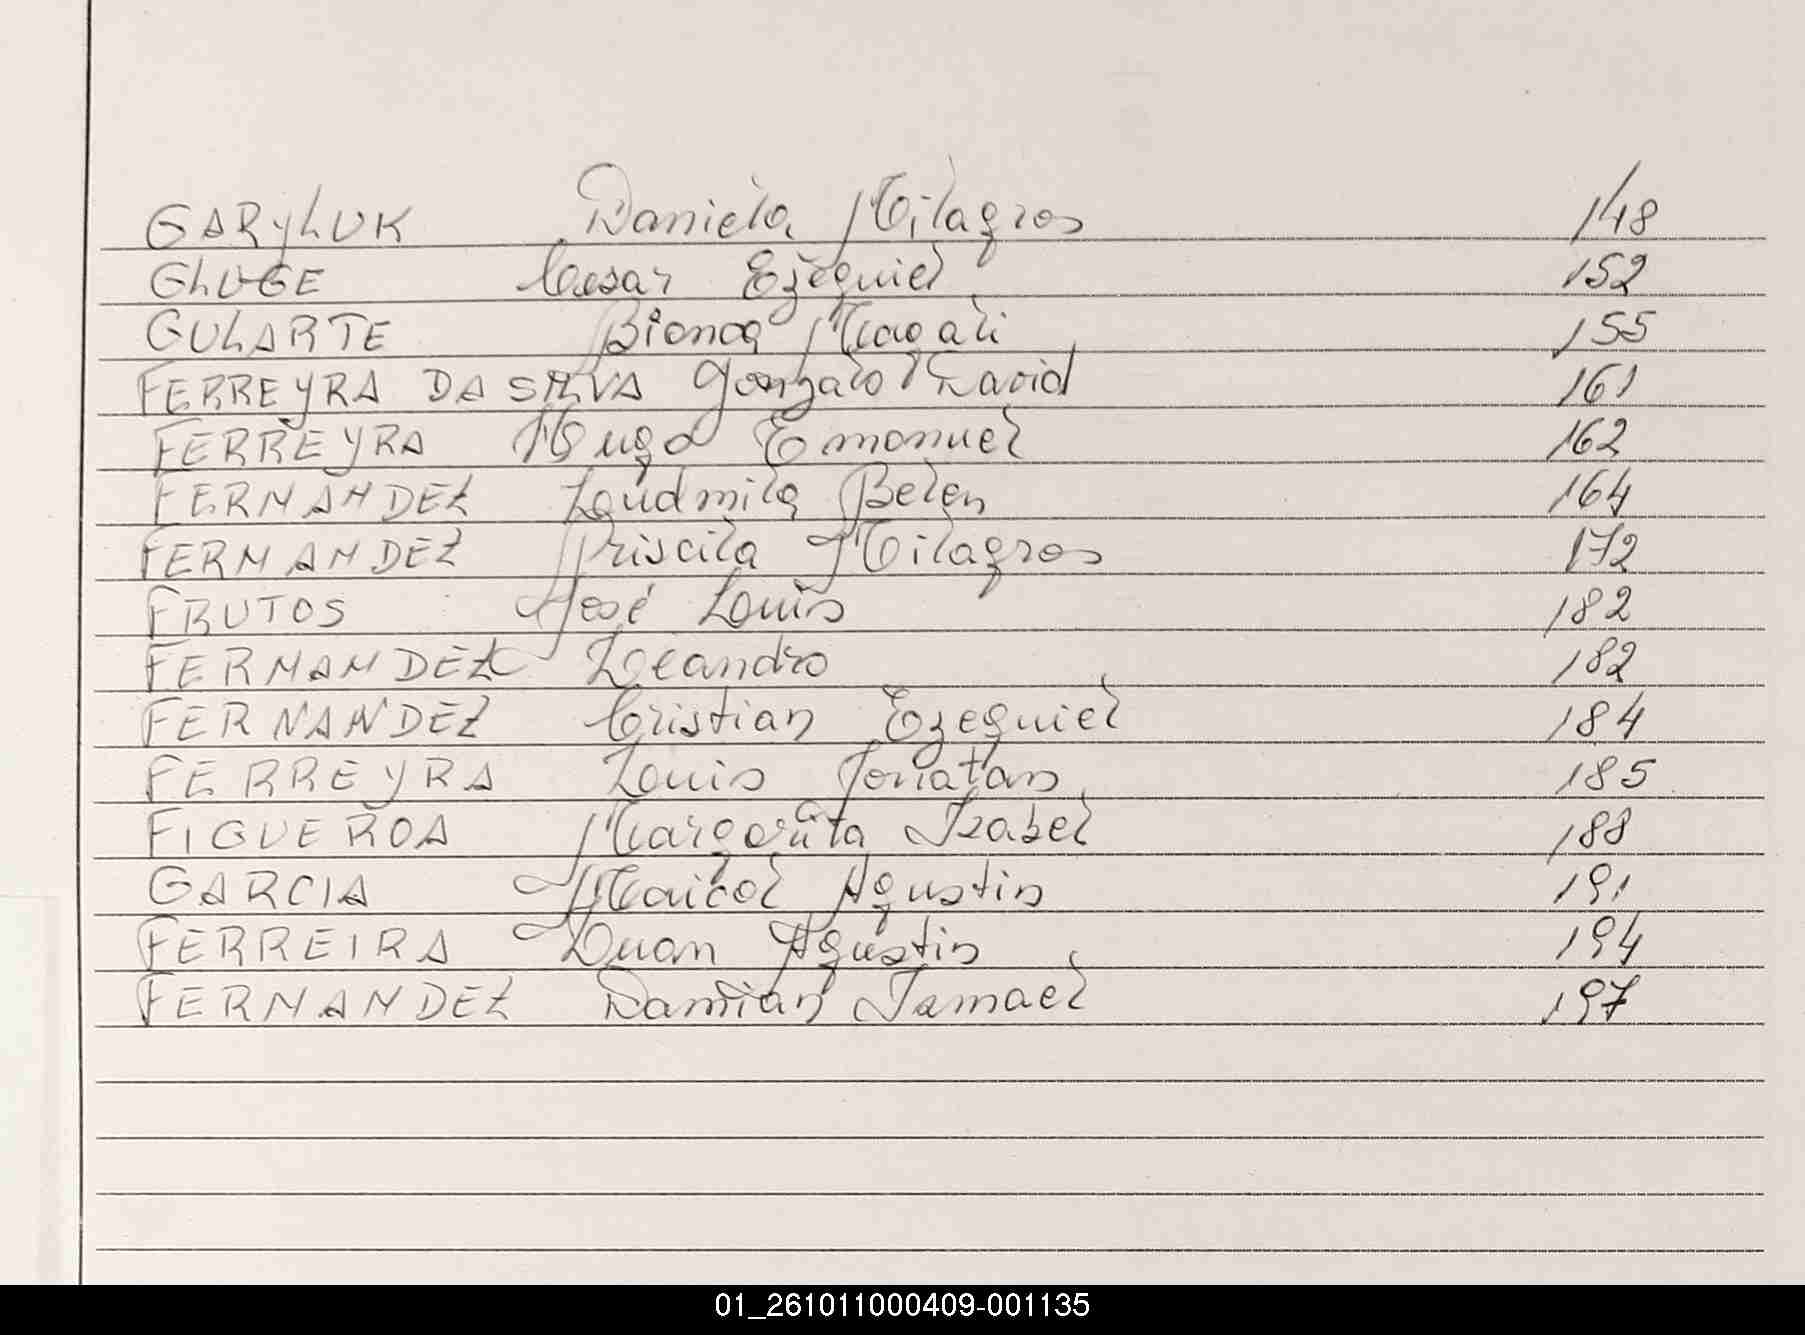 GARYLUK Daniela Milagros 148
GLUGE Cesar Ezequiel 152
GULARTE Bianca Magali 155
FERREYRA DA SILVA Gonzalo David 161
FERREYRA Hugo Emanuel 162
FERNANDEZ Ludmila Belen 164
FERNANDEZ Priscila Milagros 172
FRUTOS José Luis 182
FERNANDEZ Leandro 182
FERNANDEZ Cristian Ezequiel 184
FERREYRA Luis Jonatan 185
FIGUEROA Margarita Isabel 188
GARCIA Maicol Agustin 191
FERREIRA Juan Agustin 194
FERNANDEZ Damian Ismael 197
01_261011000409-001135